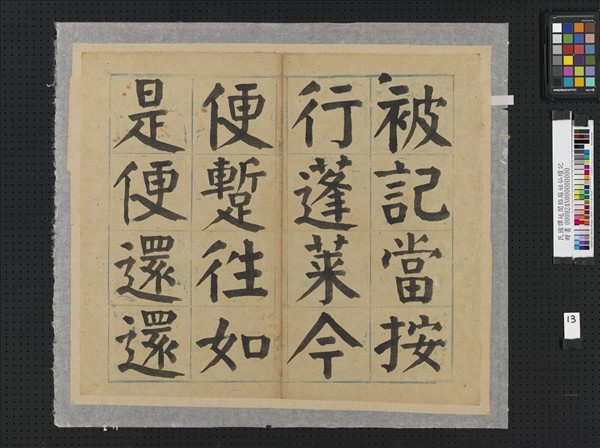 被記當按
行蓬萊今
便蹔往如
是便還還
13